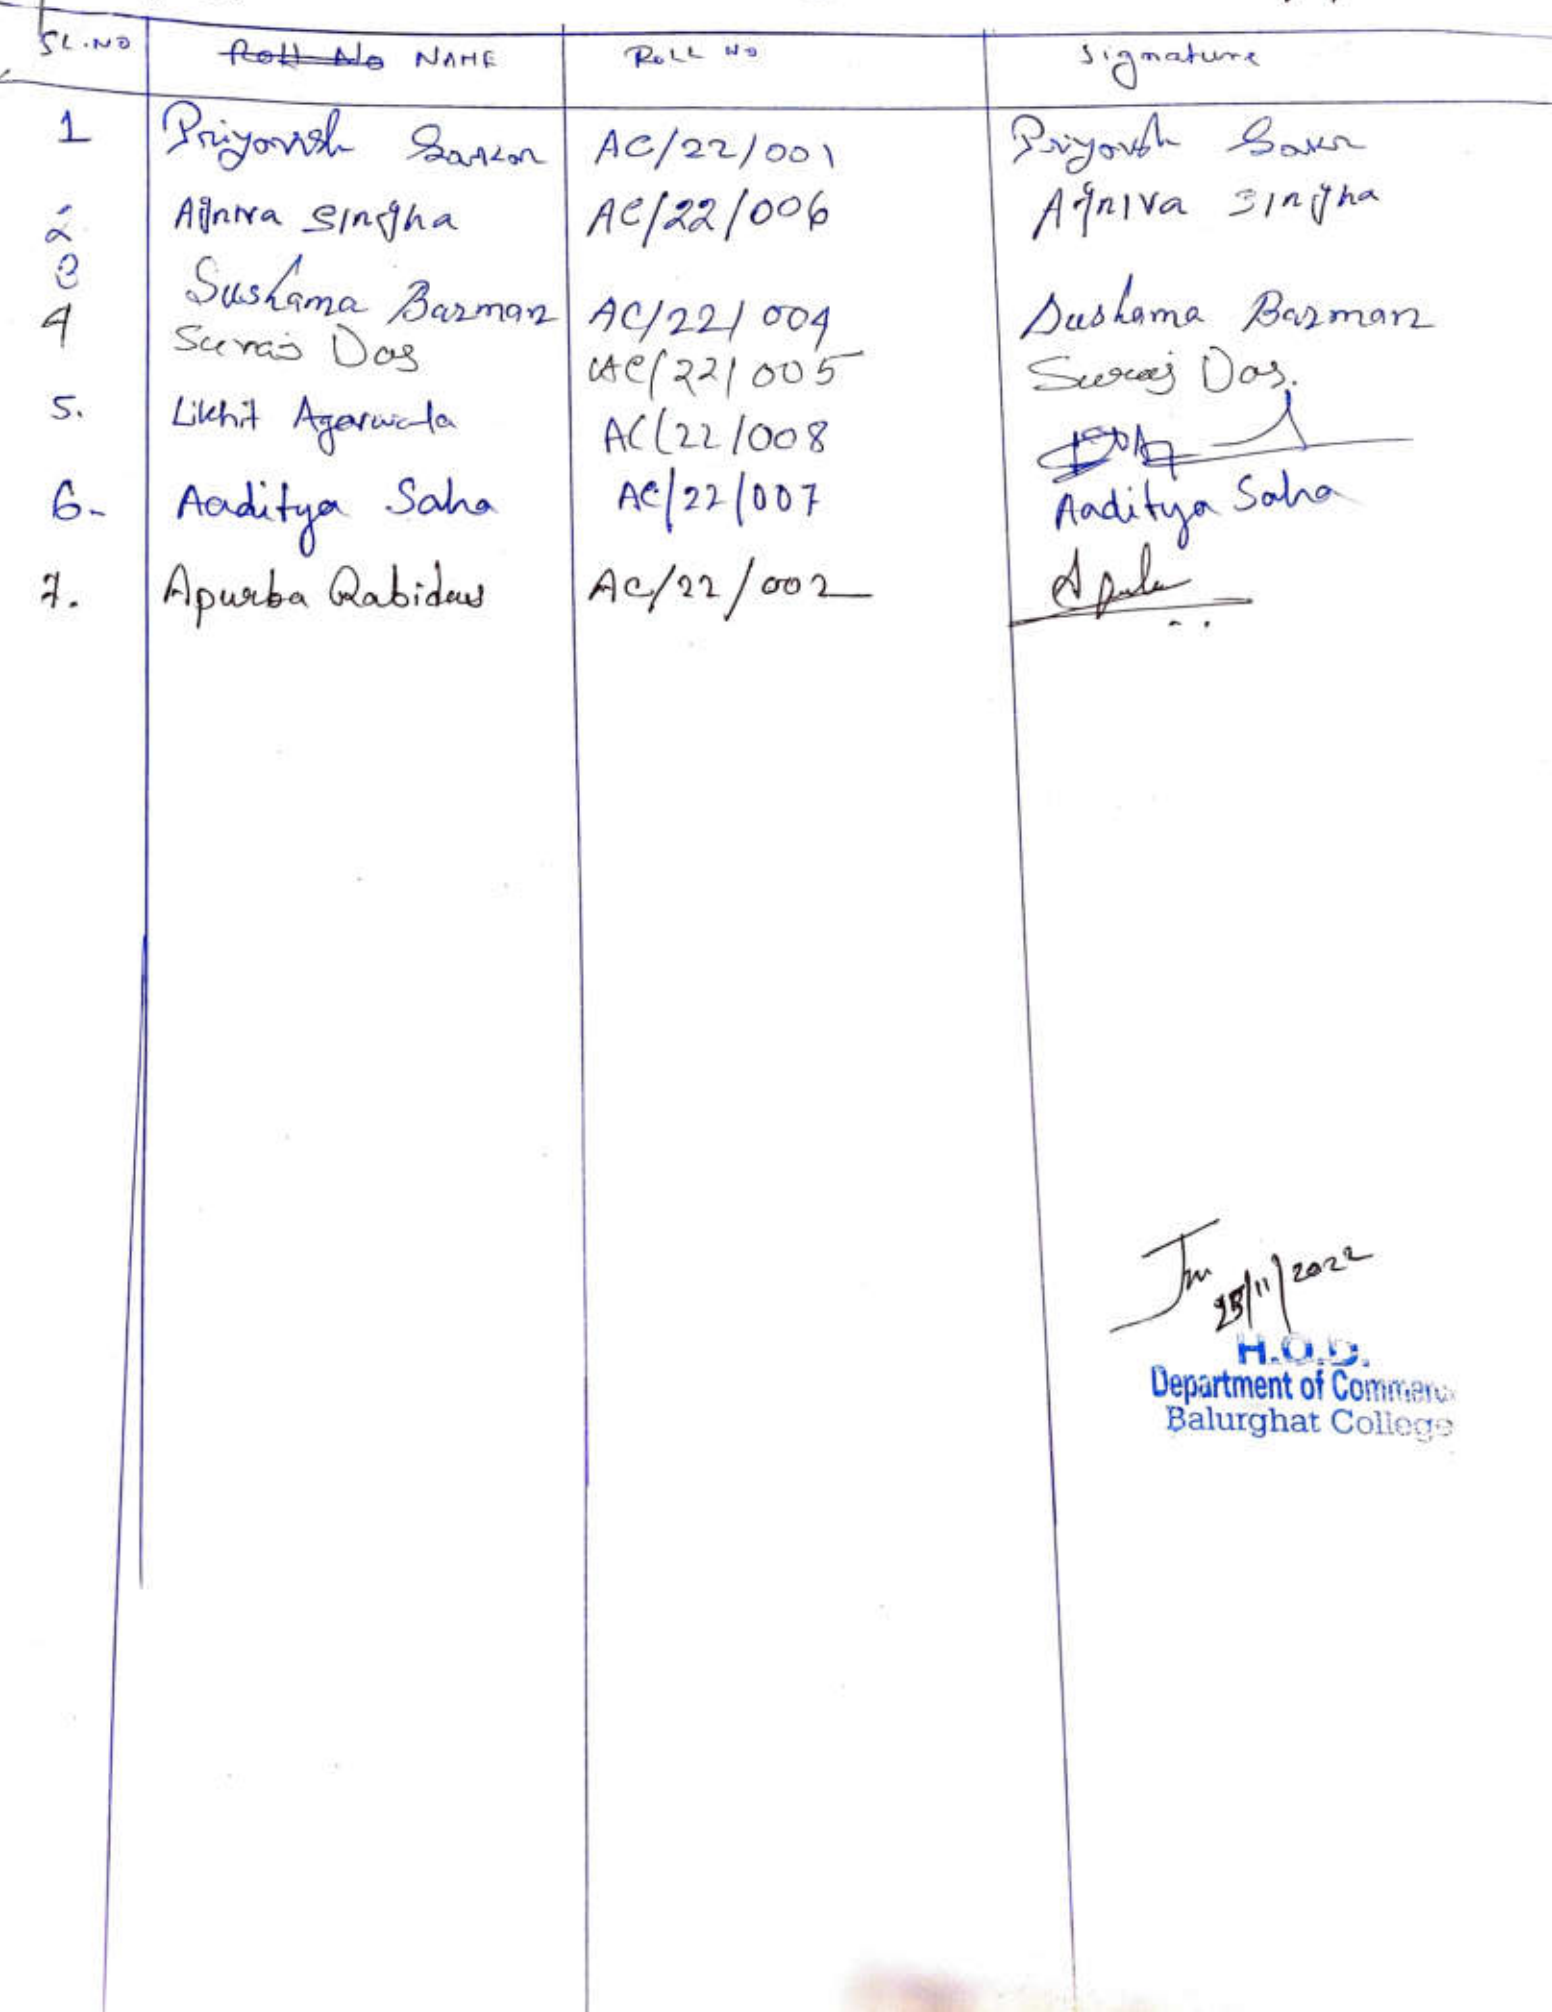 SL.NO Roll No NAME ROLL NO Signature
1 Priyansh Sarkar AC/22/001 Priyansh Sarkar
2 Agniva Singha AC/22/006 Agniva Singha
3 Sushama Barman AC/22/004 Sushama Barman
4 Suraj Das AC/22/005 Suraj Das.
5. Likhit Agarwala AC/22/008
6- Aaditya Saha AC/22/007 Aaditya Saha
7. Apurba Rabidas AC/22/002
/11/2022
H.O.D.
Department of Commerce
Balurghat College